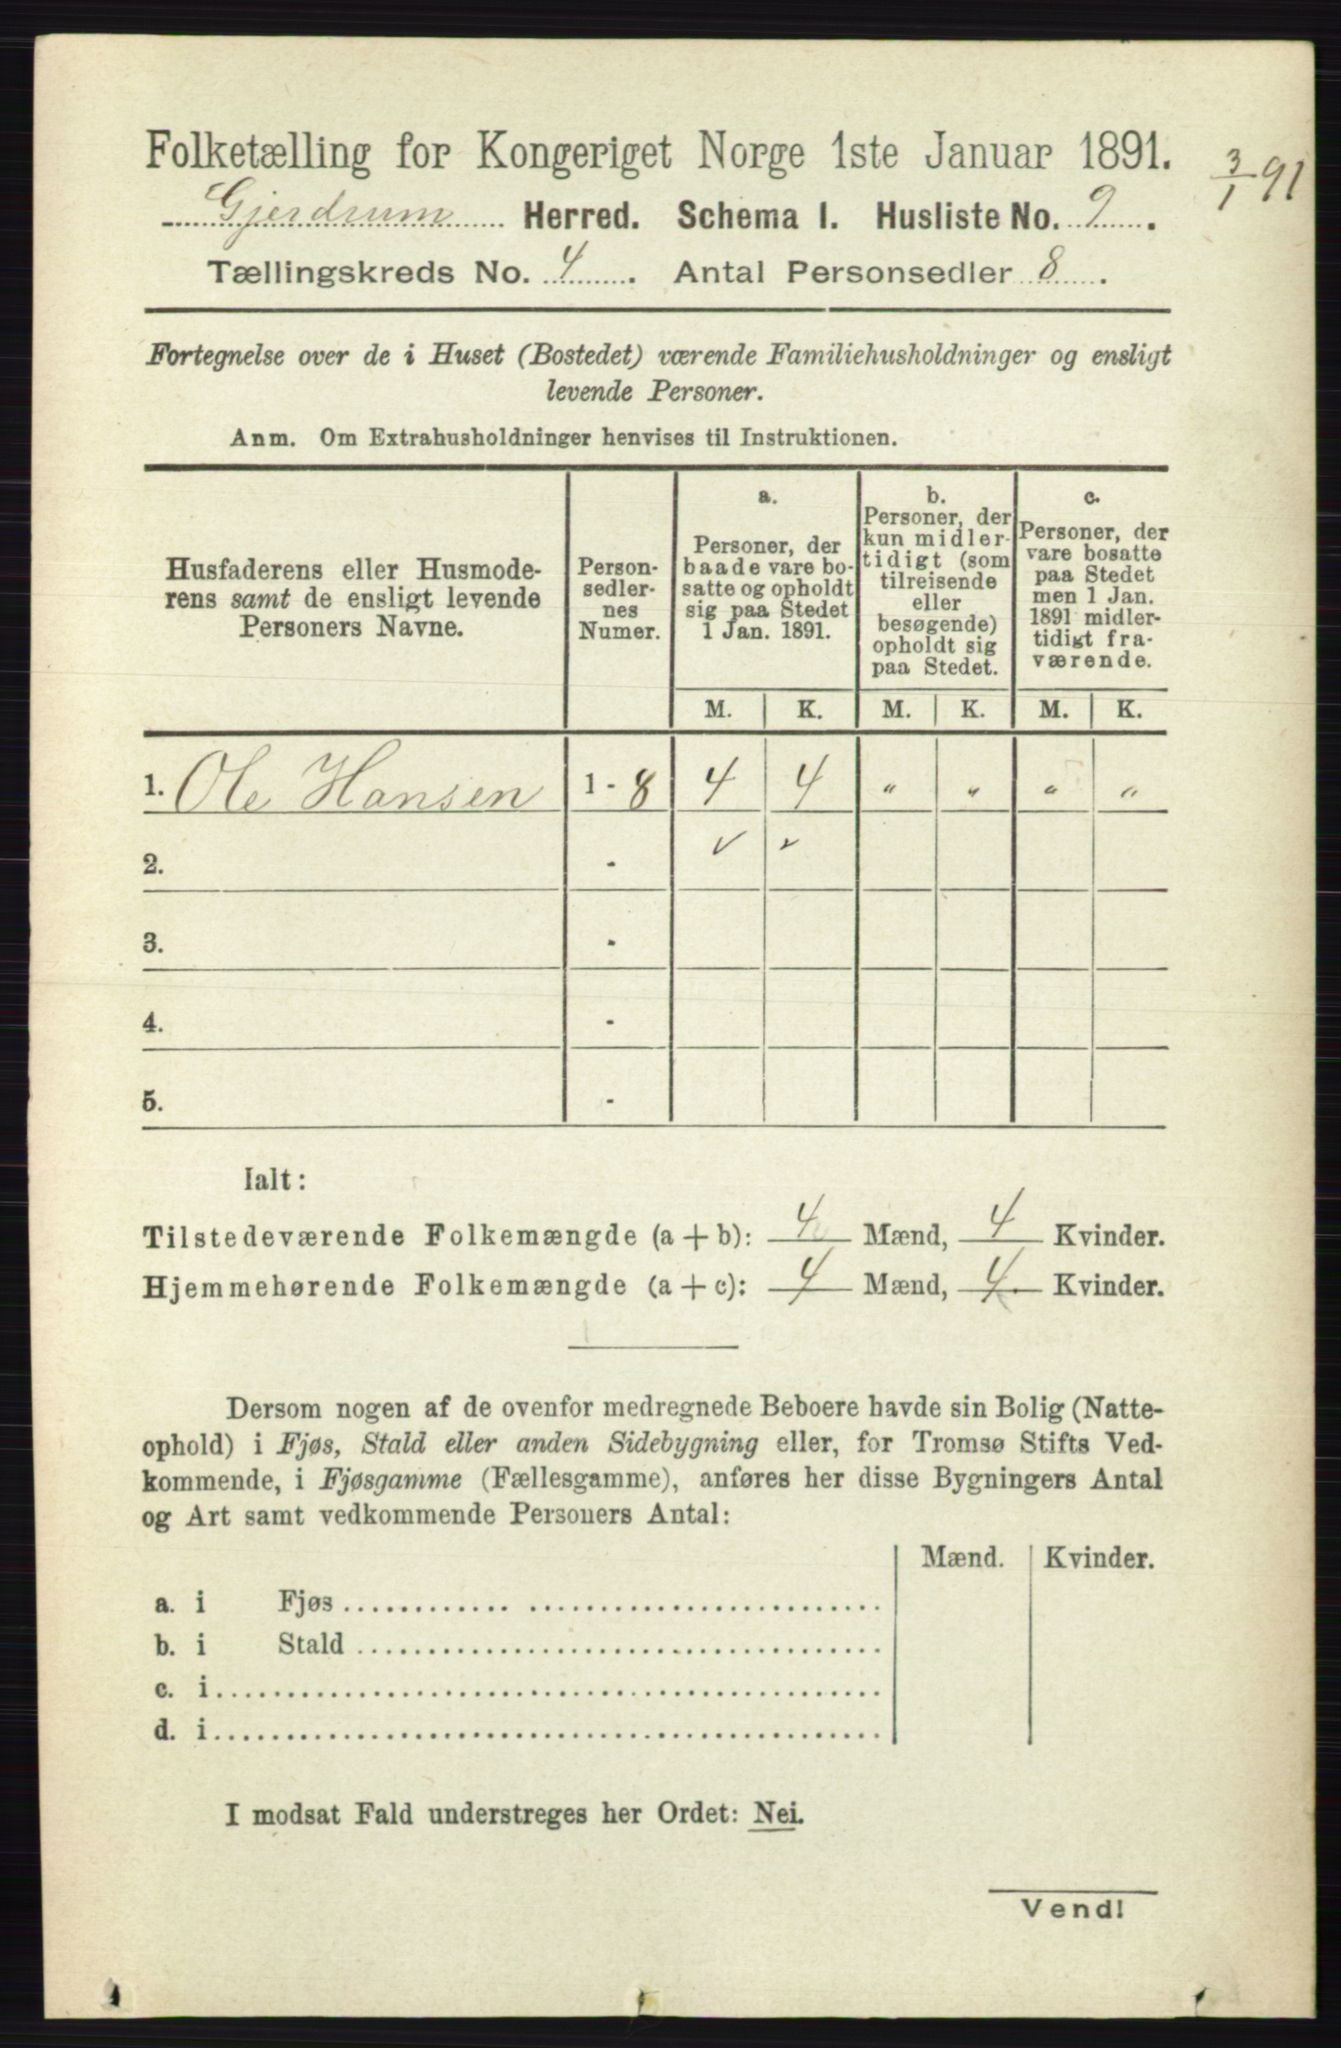 Folketælling for Kongeriget Norge 1ste Januar 1891.
3/1 91
Gjerdrum Herred. Schema I. Husliste No. 9.
Tællingskreds No. 4. Antal Personsedler 8.
Fortegnelse over de i Huset (Bostedet) værende Familiehusholdninger og ensligt
levende Personer.
Anm. Om Extrahusholdninger henvises til Instruktionen.
Husfaderens eller Husmode-
rens samt de ensligt levende
Personers Navne.
Person-
sedler-
nes
Numer.
a.
Personer, der
baade vare bo-
satte og opholdt
sig paa Stedet
1 Jan. 1891.
b.
Personer, der
kun midler-
tidigt (som
tilreisende
eller
besøgende)
opholdt sig
paa Stedet.
c.
Personer, der
vare bosatte
paa Stedet
men 1 Jan.
1891 midler-
tidigt fra-
værende.
M. K. M. K. M. K.
1. Ole Hansen 1 - 8 4 4 " " " "
2. - ✓ ✓
3. -
4. -
5. -
Ialt:
Tilstedeværende Folkemængde (a + b): 4 Mænd, 4 Kvinder.
Hjemmehørende Folkemængde (a + c): 4 Mænd, 4 Kvinder.
Dersom nogen af de ovenfor medregnede Beboere havde sin Bolig (Natte-
ophold) i Fjøs, Stald eller anden Sidebygning eller, for Tromsø Stifts Ved-
kommende, i Fjøsgamme (Fællesgamme), anføres her disse Bygningers Antal
og Art samt vedkommende Personers Antal:
Mænd. Kvinder.
a. i Fjøs
b. i Stald
c. i
d. i
I modsat Fald understreges her Ordet: Nei.
Vend!